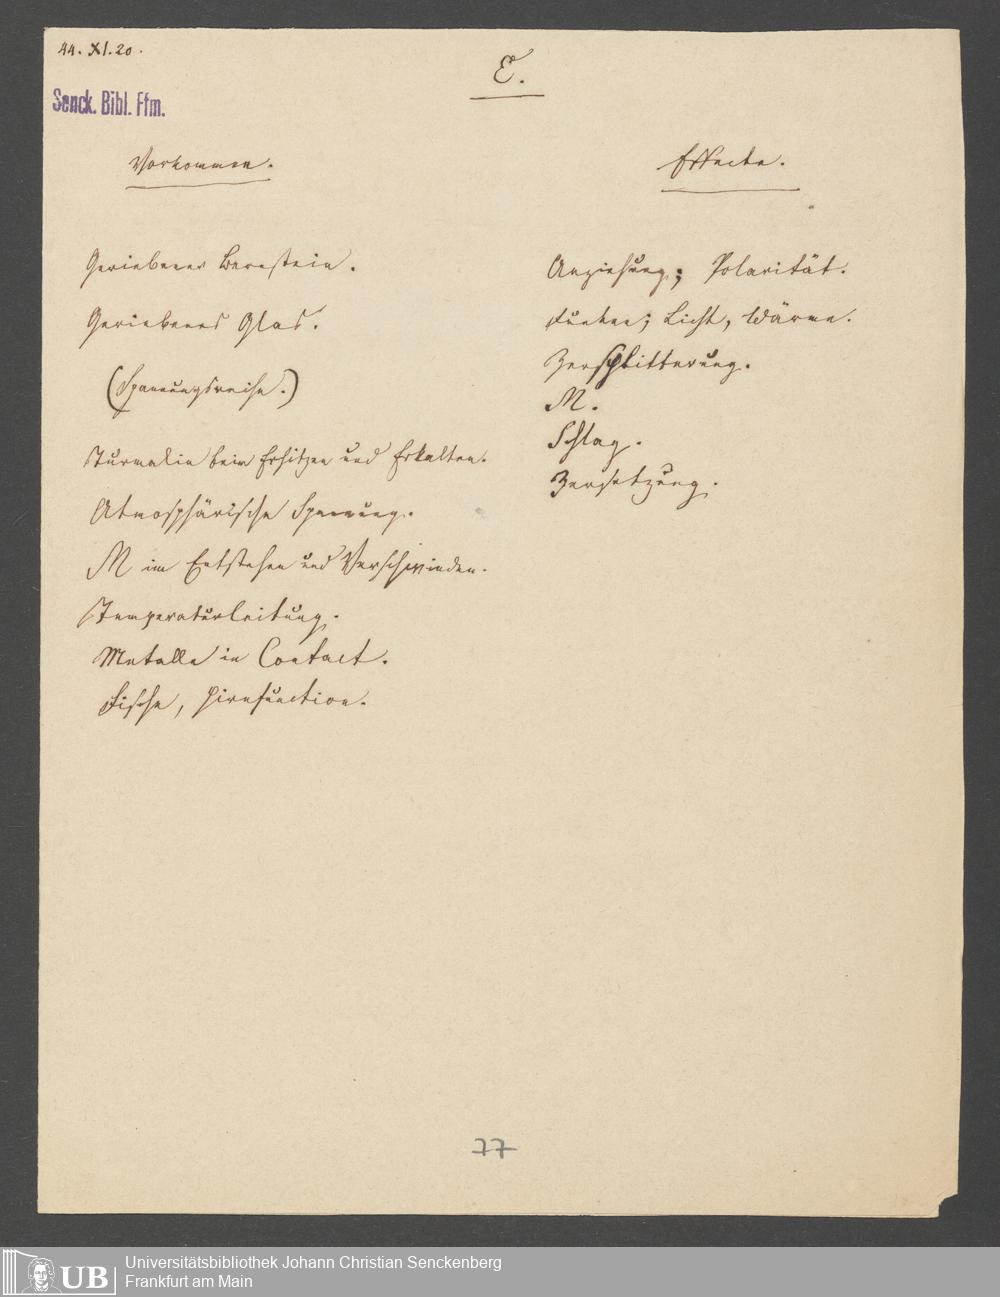 44. XI. 20.
E.
Senck. Bibl. Ffm.
Vorkommen.
Geriebener Bernstein.
Geriebenes Glas.
(Spannungsreihe.)
Turmalin beim Erhitzen und Erkalten.
Atmosphärische Spannung.
M im Entstehen und Verschwinden.
Temperaturleitung.
Metalle in Contact.
Fische, Hirnfunction.
Effecte.
Anziehung; Polarität.
Funken; Licht, Wärme.
Zersplitterung.
M.
Schlag.
Zersetzung.
77
UB
Universitätsbibliothek Johann Christian Senckenberg
Frankfurt am Main